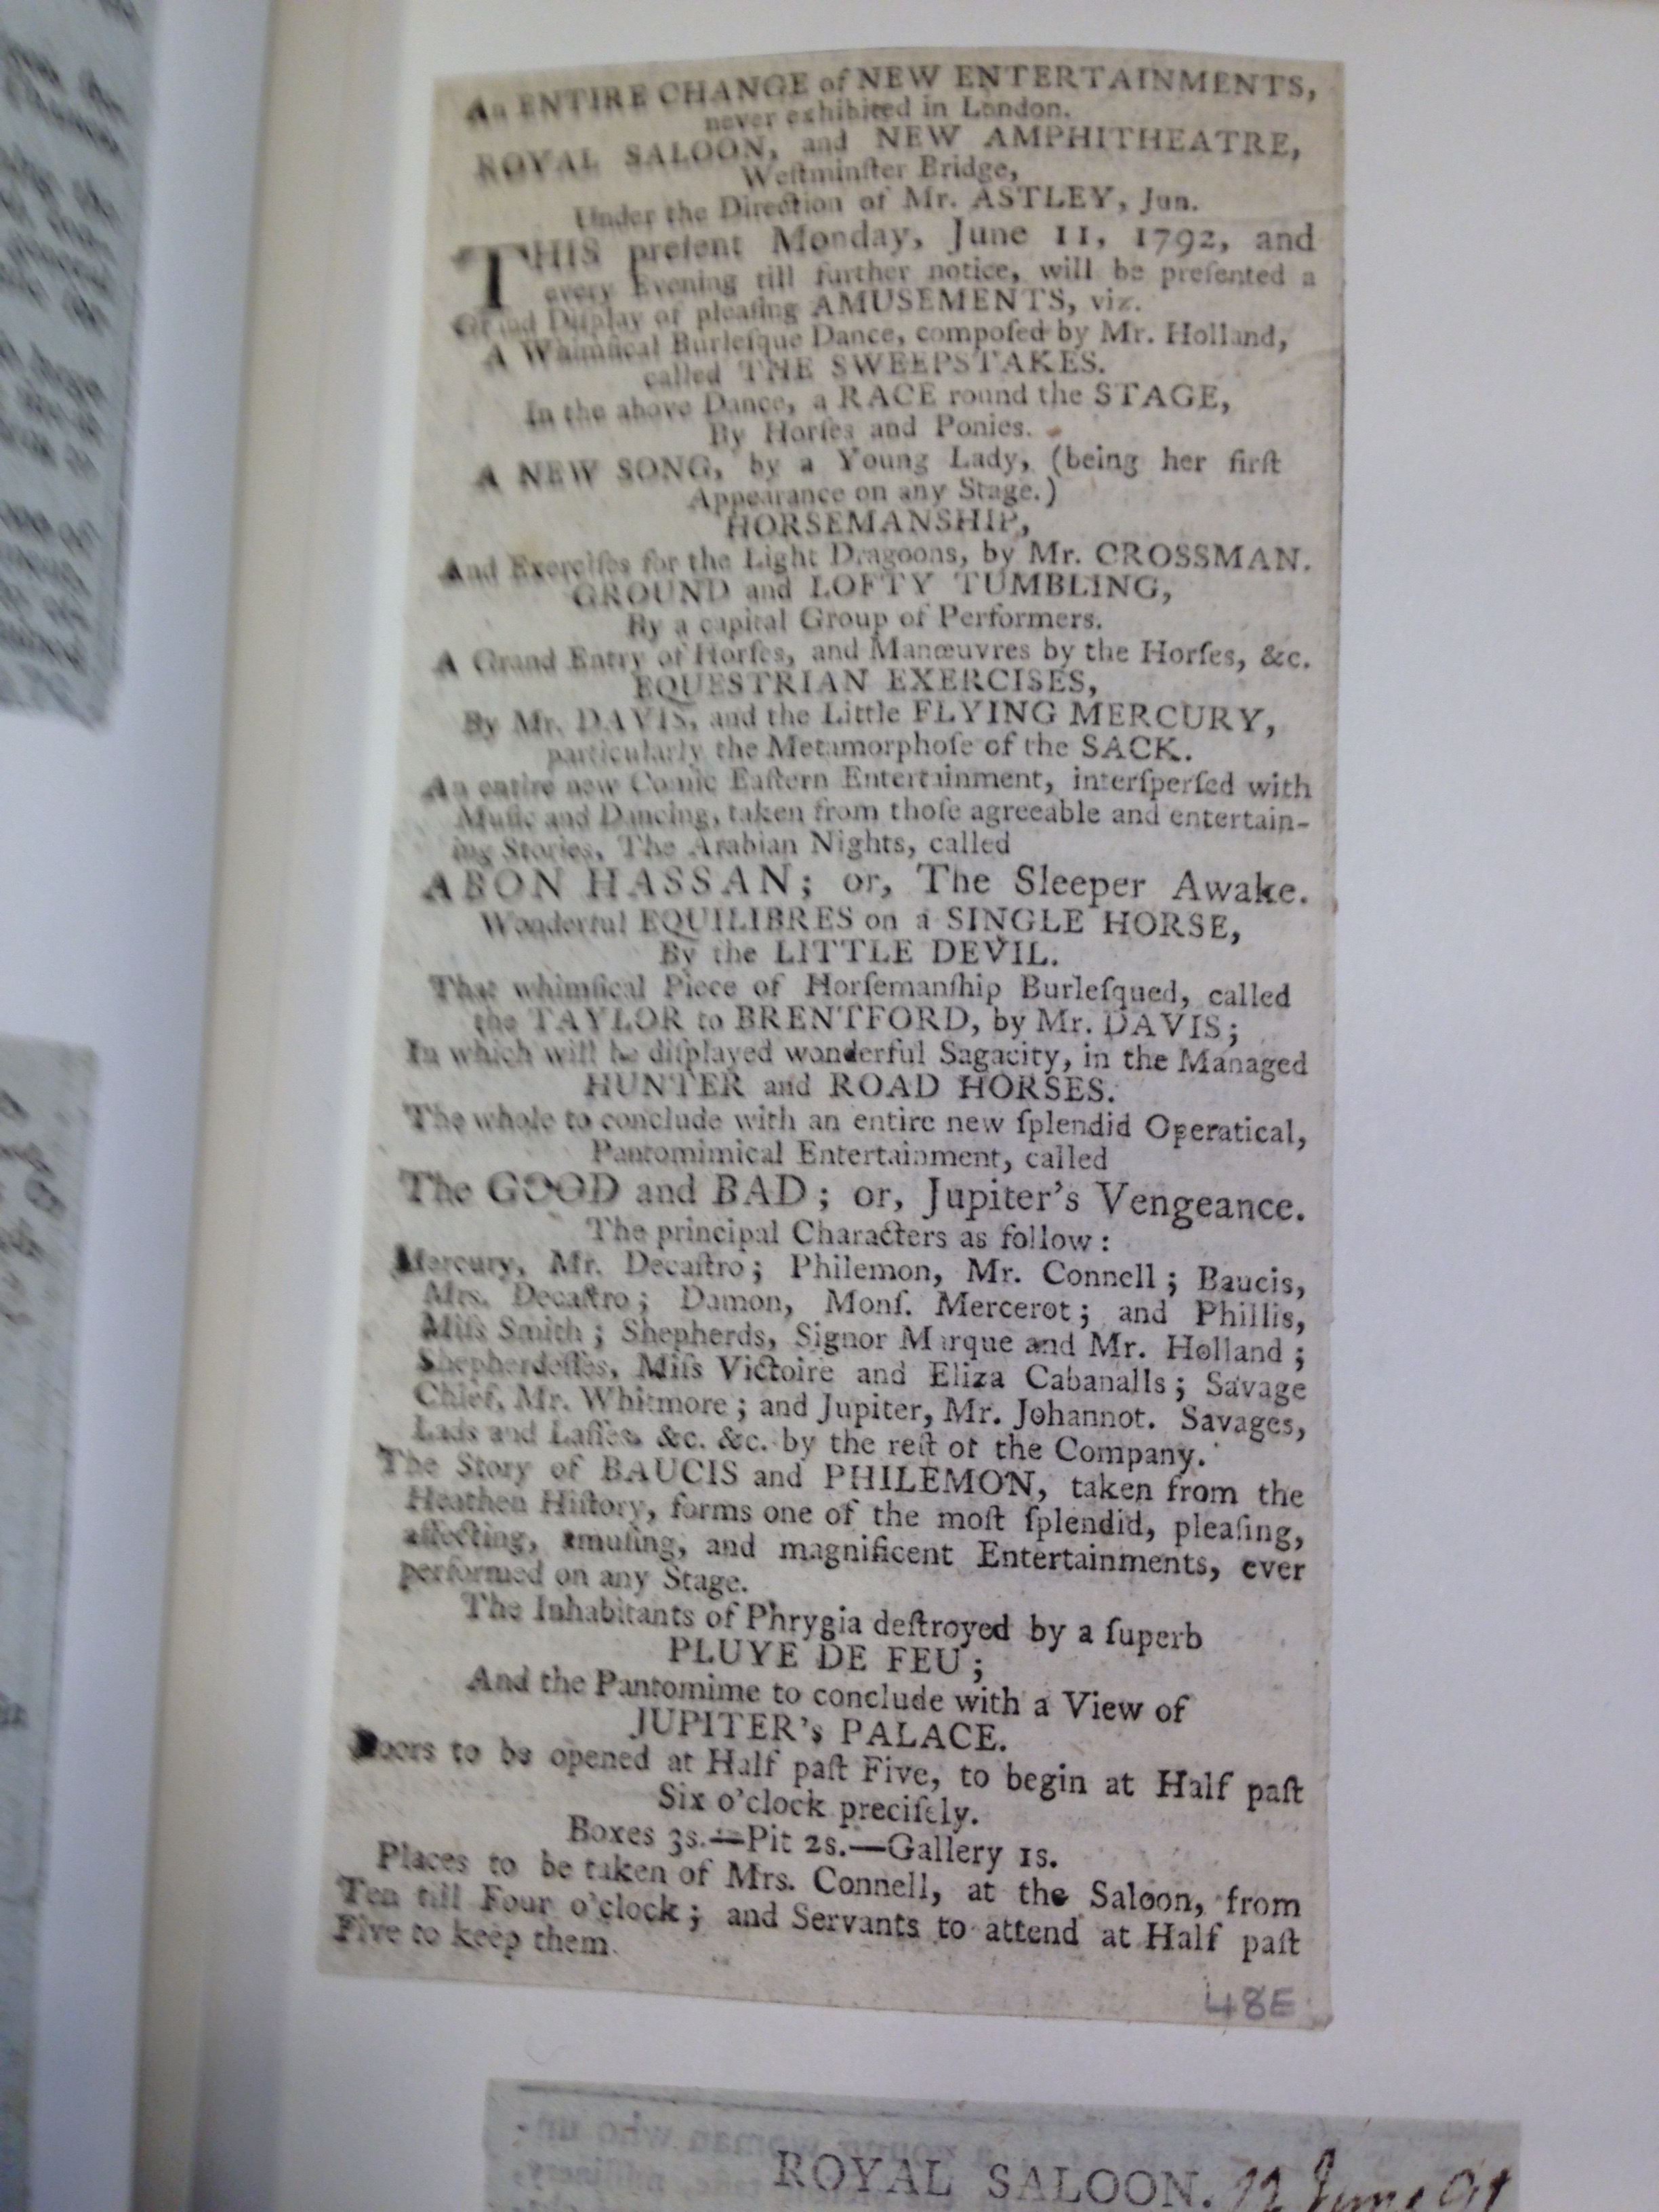 An ENTIRE CHANGE of NEW ENTERTAINMENTS,
never exhibited in London.
ROYAL SALOON, and NEW AMPHITHEATRE,
Weſtminſter Bridge,
Under the Direction of Mr. ASTLEY, Jun.
THIS preſent Monday, June 11, 1792, and
every Evening till further notice, will be preſented a
Grand Diſplay of pleaſing AMUSEMENTS, viz.
A Whimſical Burleſque Dance, compoſed by Mr. Holland,
called THE SWEEPSTAKES.
In the above Dance, a RACE round the STAGE,
By Horſes and Ponies.
A NEW SONG, by a Young Lady, (being her firſt
Appearance on any Stage.)
HORSEMANSHIP,
And Exerciſes for the Light Dragoons, by Mr. CROSSMAN.
GROUND and LOFTY TUMBLING,
By a capital Group of Performers.
A Grand Entry of Horſes, and Manœuvres by the Horſes, &c.
EQUESTRIAN EXERCISES,
By Mr. DAVIS, and the Little FLYING MERCURY,
particularly the Metamorphoſe of the SACK.
An entire new Comic Eaſtern Entertainment, interſperſed with
Muſic and Dancing, taken from thoſe agreeable and entertain-
ing Stories, The Arabian Nights, called
ABON HASSAN; or, The Sleeper Awake.
Wonderful EQUILIBRES on a SINGLE HORSE,
By the LITTLE DEVIL.
That whimſical Piece of Horſemanſhip Burleſqued, called
the TAYLOR to BRENTFORD, by Mr. DAVIS;
In which will be diſplayed wonderful Sagacity, in the Managed
HUNTER and ROAD HORSES.
The whole to conclude with an entire new ſplendid Operatical,
Pantomimical Entertainment, called
The GOOD and BAD; or, Jupiter's Vengeance.
The principal Characters as follow:
Mercury, Mr. Decaſtro; Philemon, Mr. Connell; Baucis,
Mrs. Decaſtro; Damon, Monſ. Mercerot; and Phillis,
Miſs Smith; Shepherds, Signor Marque and Mr. Holland;
Shepherdeſſes, Miſs Victoire and Eliza Cabanalls; Savage
Chief, Mr. Whitmore; and Jupiter, Mr. Johannot. Savages,
Lads and Laſſes, &c. &c. by the reſt of the Company.
The Story of BAUCIS and PHILEMON, taken from the
Heathen Hiſtory, forms one of the moſt ſplendid, pleaſing,
affecting, amuſing, and magnificent Entertainments, ever
performed on any Stage.
The Inhabitants of Phrygia deſtroyed by a ſuperb
PLUYE DE FEU;
And the Pantomime to conclude with a View of
JUPITER's PALACE.
Doors to be opened at Half paſt Five, to begin at Half paſt
Six o'clock preciſely.
Boxes 3s.—Pit 2s.—Gallery 1s.
Places to be taken of Mrs. Connell, at the Saloon, from
Ten till Four o'clock; and Servants to attend at Half paſt
Five to keep them.
48E
ROYAL SALOON. 22 June 91